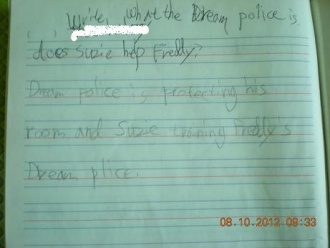 Write, What the Dream police is,
does Suzie help Freddy?
Dream police is protecting his
room and Suzie training Freddy's
Dream plice.
08.10.2012 09:33